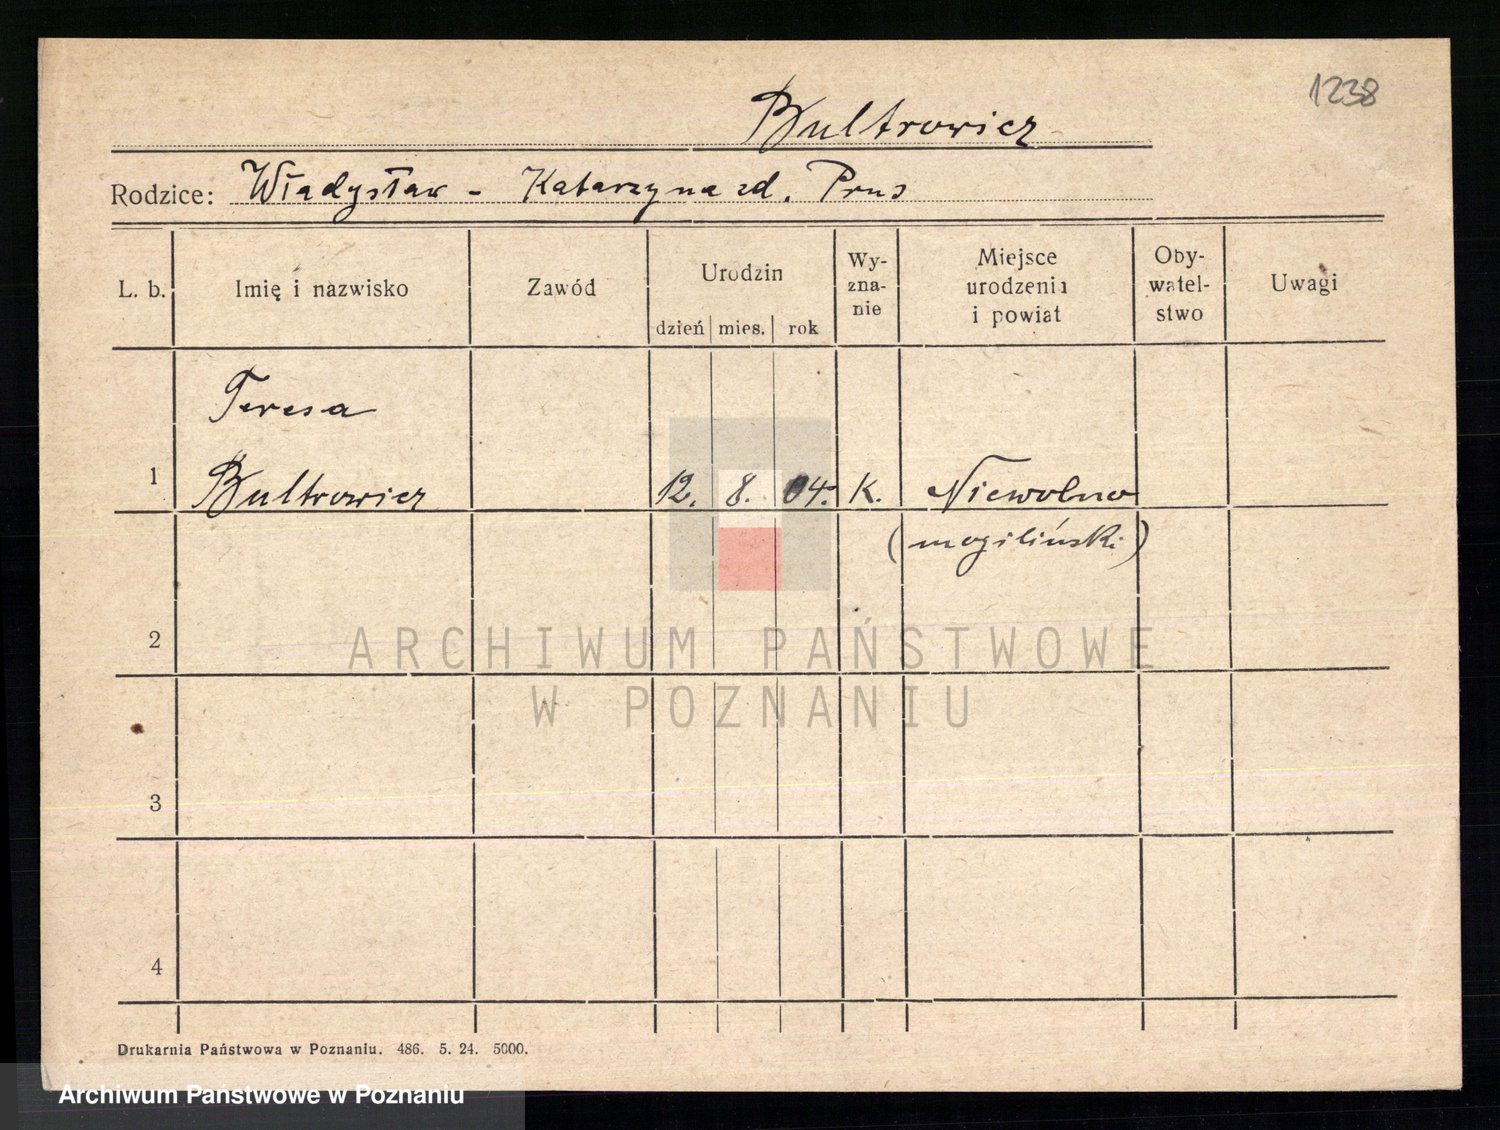 1238
Bultrowicz
Rodzice: Władysław - Katarzyna zd. Prus
L. b. Imię i nazwisko Zawód Urodzin dzień mies. rok Wy-zna-nie Miejsce urodzenia i powiat Oby-watel-stwo Uwagi
Teresa
1 Bultrowicz 12. 8. 04. K. Niewolno
(mogiliński)
2
ARCHIWUM PAŃSTWOWE
W POZNANIU
3
4
Drukarnia Państwowa w Poznaniu. 486. 5. 24. 5000.
Archiwum Państwowe w Poznaniu